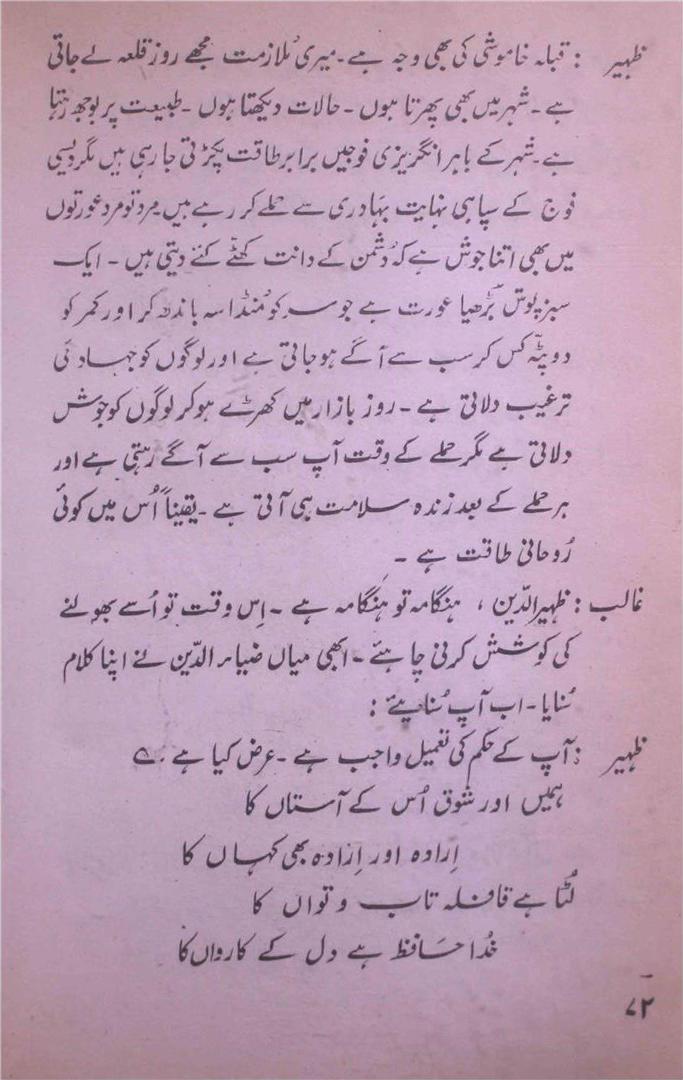 ظہیر : قبلہ خاموشی کی بھی وجہ ہے۔ میری مُلازمت مجھے روز قلعہ لے جاتی
ہے۔ شہر میں بھی پھرتا ہوں۔ حالات دیکھتا ہوں۔ طبیعت پر بوجھ رہتا
ہے۔ شہر کے باہر انگریزی فوجیں برابر طاقت پکڑتی جارہی ہیں مگر دیسی
فوج کے سپاہی نہایت بہادری سے حملے کر رہے ہیں۔ مرد تو مرد عورتوں
میں بھی اتنا جوش ہے کہ دُشمن کے دانت کھٹّے کئے دیتی ہیں۔ ایک
سبز پوش بڑھیا عورت ہے جو سر کو مُنڈاسہ باندھ کر اور کمر کو
دوپٹّہ کس کر سب سے آگے ہو جاتی ہے اور لوگوں کو جہاد کی
ترغیب دلاتی ہے۔ روز بازار میں کھڑے ہو کر لوگوں کو جوش
دلاتی ہے مگر حملے کے وقت آپ سب سے آگے رہتی ہے اور
ہر حملے کے بعد زندہ سلامت ہی آتی ہے۔ یقیناً اُس میں کوئی
رُوحانی طاقت ہے ۔
غالب : ظہیرالدّین ، ہنگامہ تو ہنگامہ ہے ۔ اِس وقت تو اُسے بھولنے
کی کوشش کرنی چاہئے۔ ابھی میاں ضیاء الدّین نے اپنا کلام
سُنایا۔ اب آپ سُنایئے :
ظہیر : آپ کے حکم کی تعمیل واجب ہے ۔ عرض کیا ہے ؎
ہمیں اور شوق اُس کے آستاں کا
اِرادہ اور اِرادہ بھی کہاں کا
لُٹا ہے قافلہ تاب و تواں کا
خُدا حافظ ہے دل کے کارواں کا
۷۲